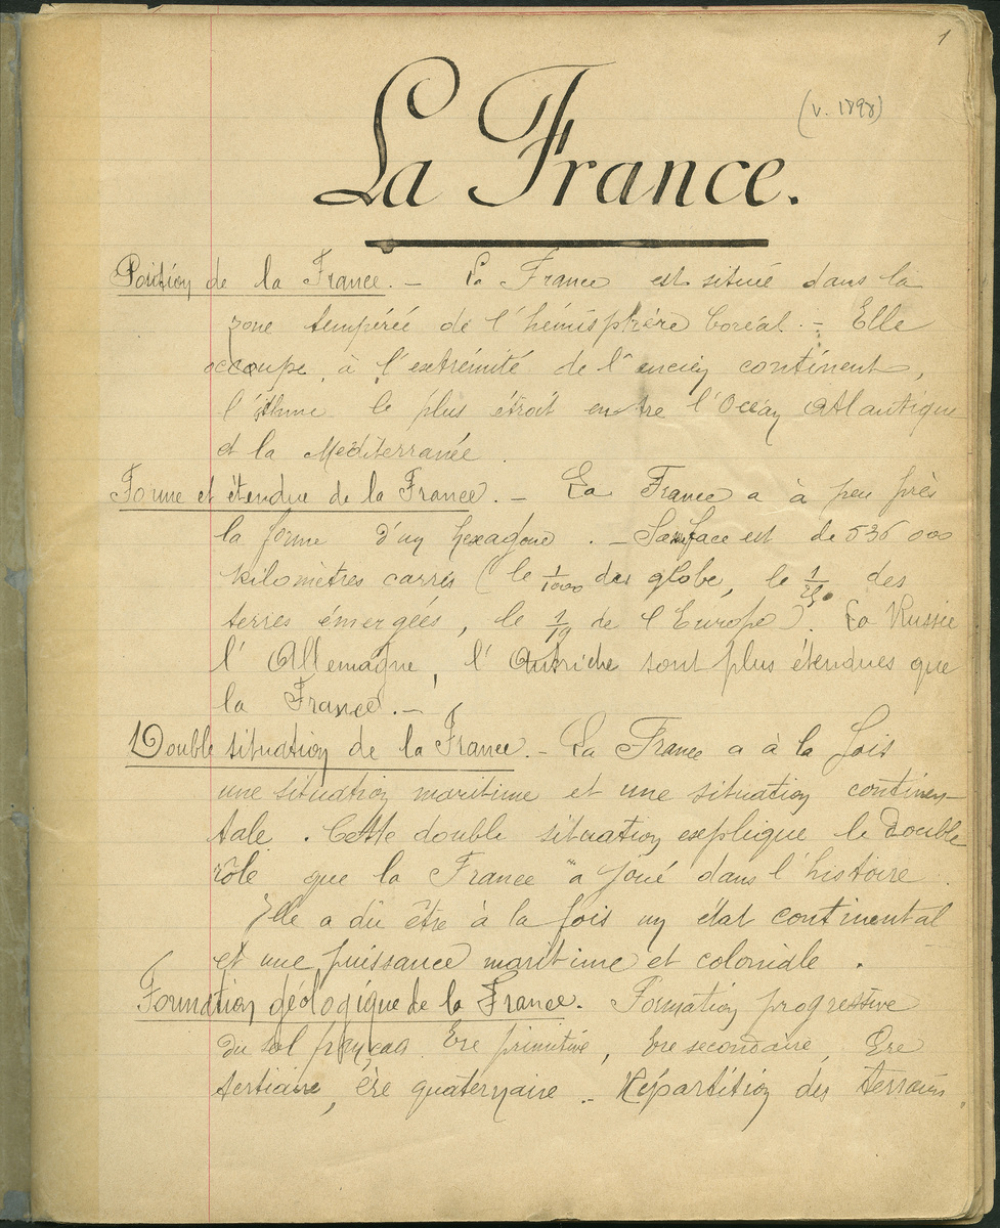 1
(v. 1898)
La France.
Position de la France. - La France est située dans la
zone tempérée de l'hémisphère boréal. - Elle
occupe, à l'extrémité de l'ancien continent,
l'isthme le plus étroit entre l'Océan Atlantique
et la Méditerranée.
Forme et étendue de la France. - La France a à peu près
la forme d'un hexagone. - Surface est de 536 000
kilomètres carrés (le 1/1000 du globe, le des
terres émergées, le 1/19 de l'Europe). La Russie
l'Allemagne, l'Autriche sont plus étendues que
la France. -
Double situation de la France. - La France a à la fois
une situation maritime et une situation continen-
tale. Cette double situation explique le double
rôle que la France a joué dans l'histoire.
Elle a dû être à la fois un état continental
et une puissance maritime et coloniale.
Formation géologique de la France. Formation progressive
du sol français. Ere primitive, ère secondaire, Ere
tertiaire, ère quaternaire - Répartition des terrains